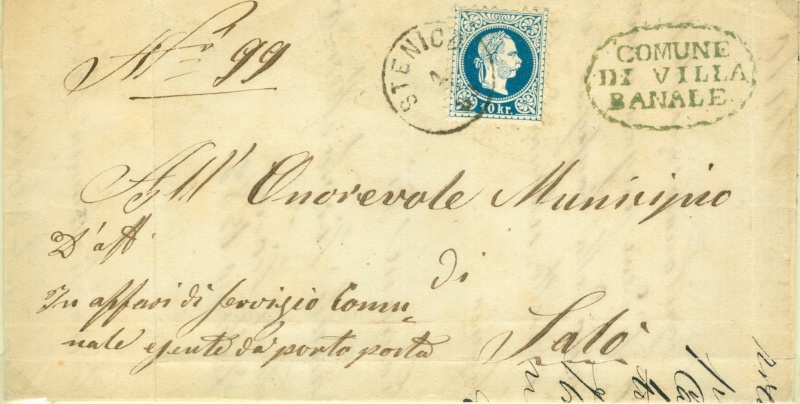 N.° 99
STENICO
10 kr.
COMUNE
DI VILLA
BANALE
All' Onorevole Municipio
D'aff.
di
In affari di servizio Comu-
nale esente da porto posta
Salò